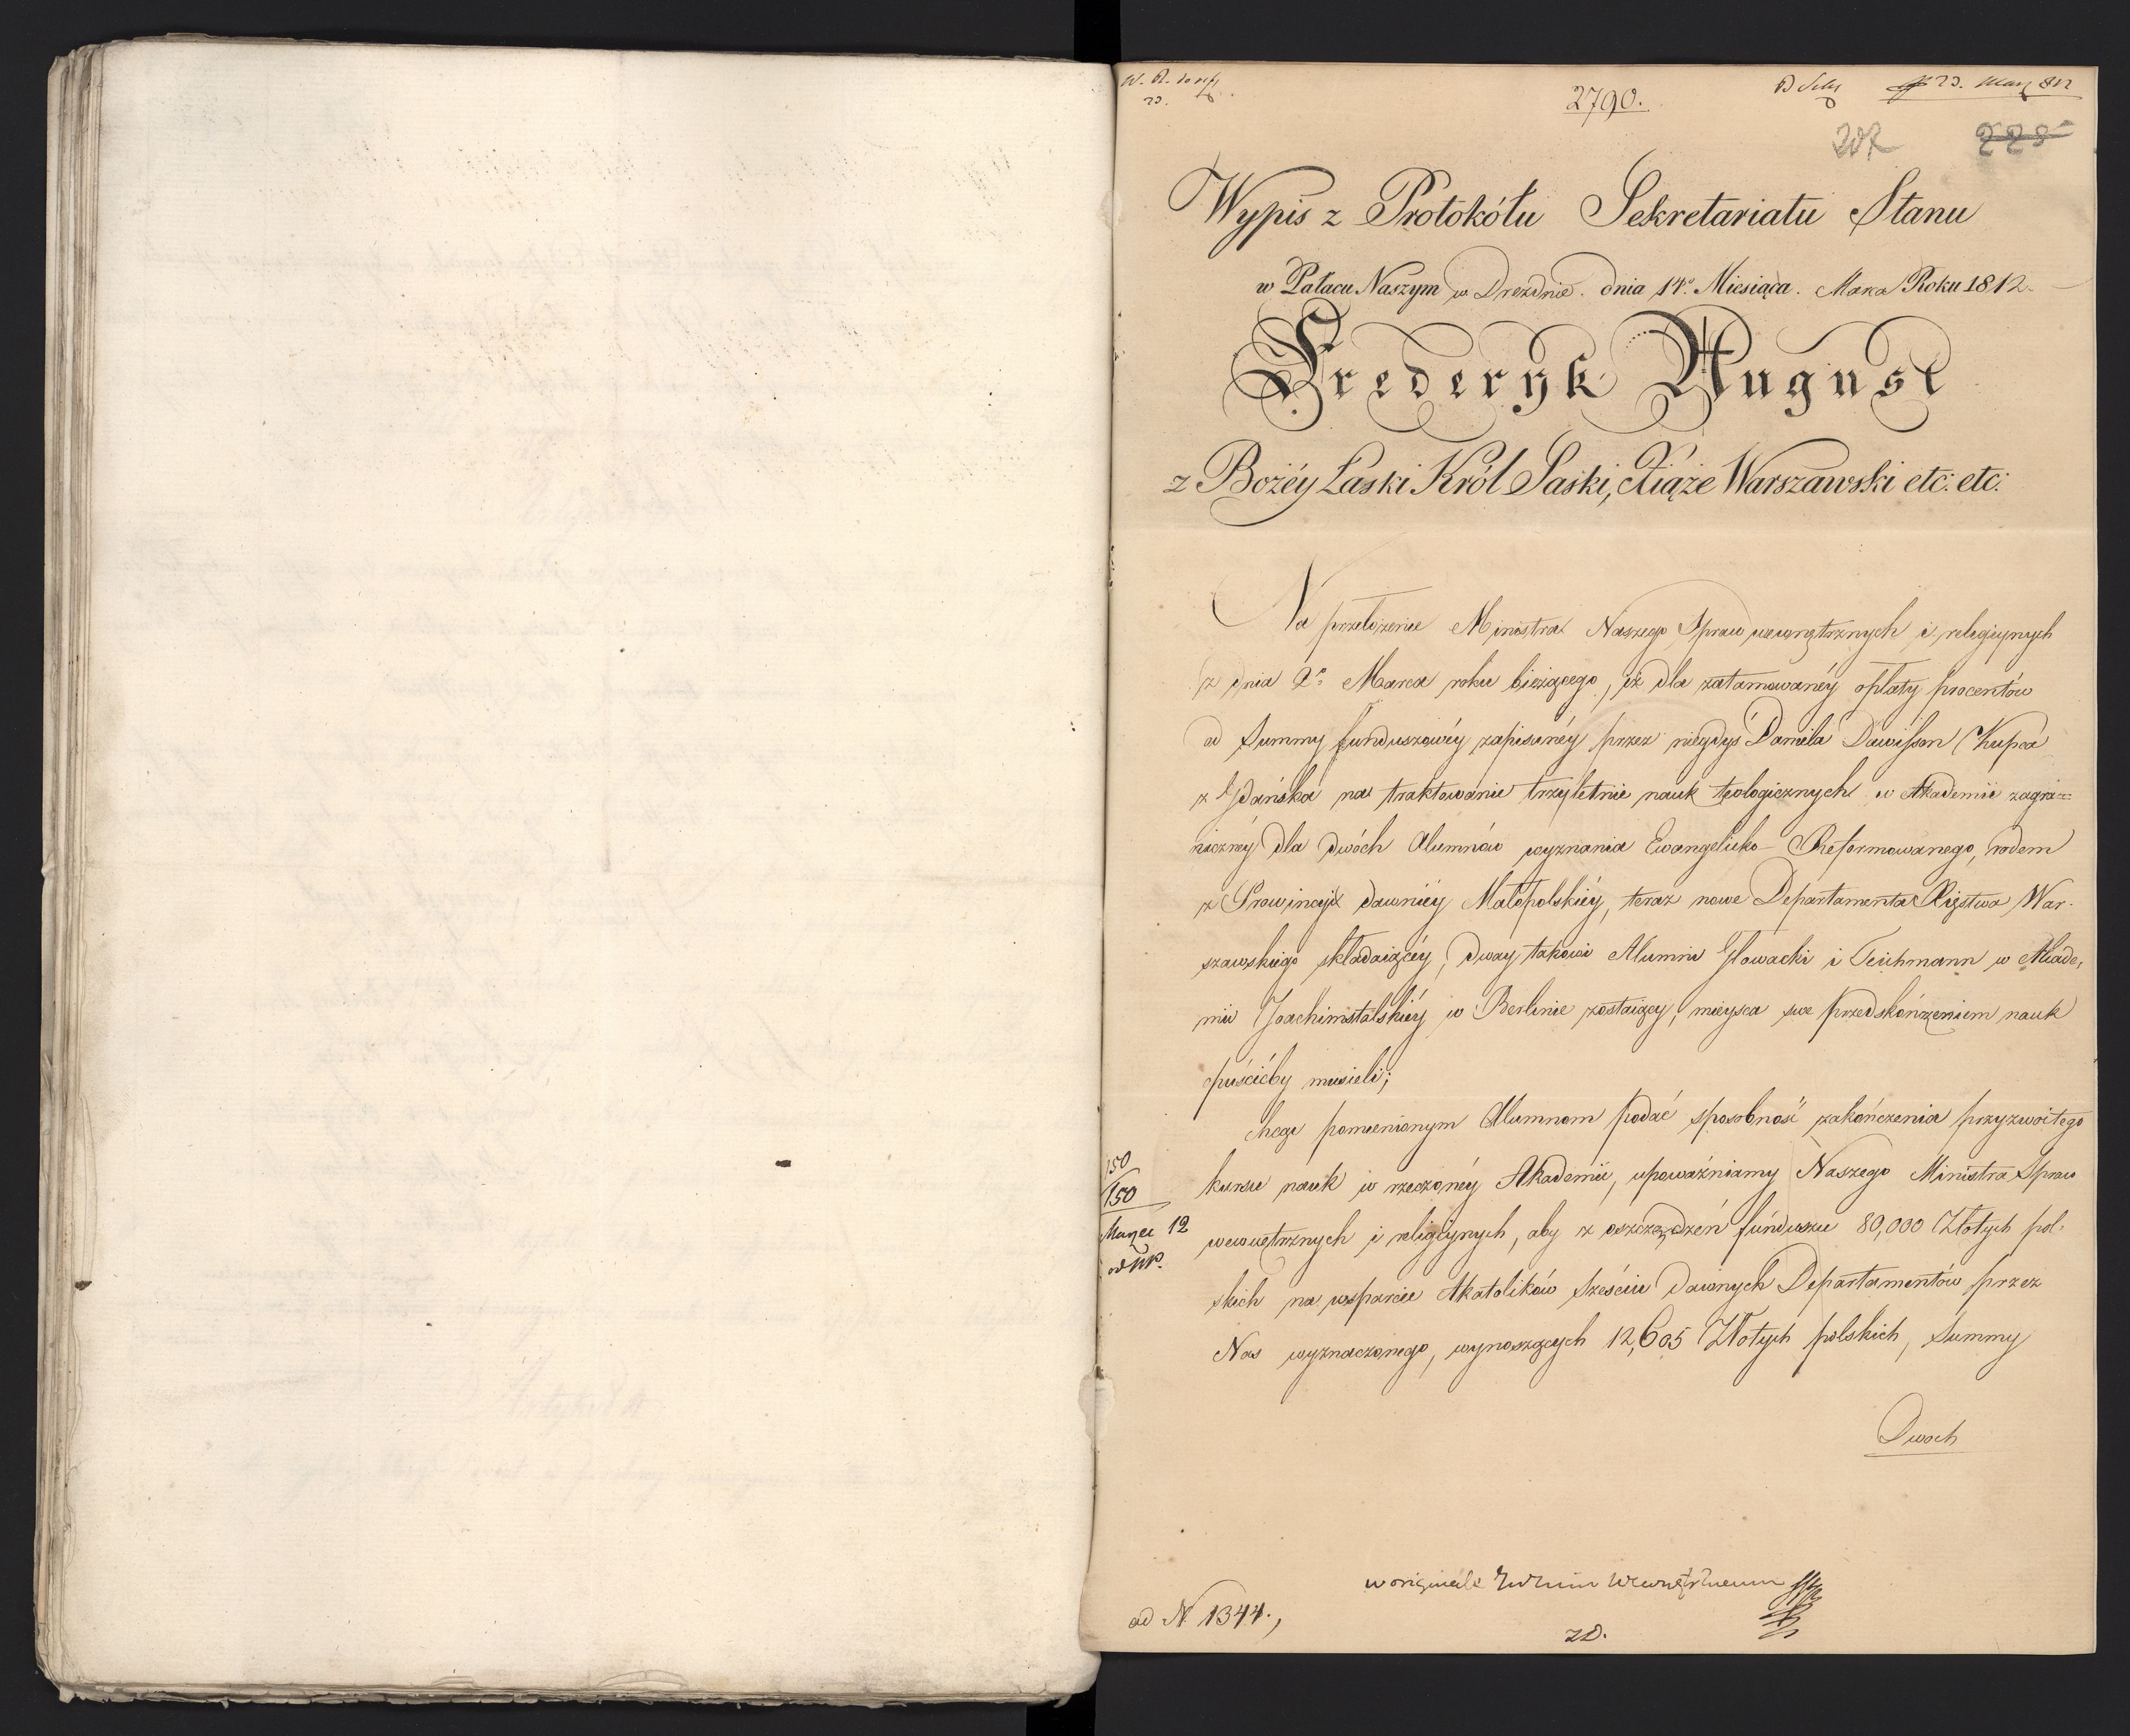 2790.
23. Marz 812
227
228
Wypis z Protokółu Sekretariatu Stanu
w Pałacu Naszym w Dreznie. dnia 14º Miesiąca. Marca Roku 1812.
Frederyk August
z Bożéy Łaski Król Saski, Xiąże Warszawski etc: etc:
Na przełożenie Ministra Naszego Spraw wewnętrznych i religiynych
z dnia 2º Marca roku bieżącego, iż dla zatamowanéy opłaty procentów
od Summy funduszowéy zapisanéy przez niegdyś Daniela Dawisson Kupca
z Gdańska na traktowanie trzyletnie nauk teologicznych w Akademii zagra=
niczney dla dwóch Alumnów wyznania Ewangelicko-Reformowanego, rodem
z Prowincyi dawniéy Małopolskiéy, teraz nowe Departamenta Xięstwa War-
szawskiego składaiącéy, dway takowi Alumni Głowacki i Teichmann w Akade,
mii Joachimstalskiéy w Berlinie zostaiący, mieysca swe przed skończeniem nauk
opuścićby musieli;
chcąc pomienionym Alumnom podać sposobność zakończenia przyzwoitego
kursu nauk w rzeczonéy Akademii, upoważniamy Naszego Ministra Spraw
wewnętrznych i religiynych, aby z oszczędzeń funduszu 80,000 Złotych pol,
skich na wsparcie Akatolików sześciu dawnych Departamentów przez
Nas wyznaczonego, wynoszących 12,605 Złotych polskich, summy
Dwóch
150
150
Marzec 12
w originale
ad N. 1344.,